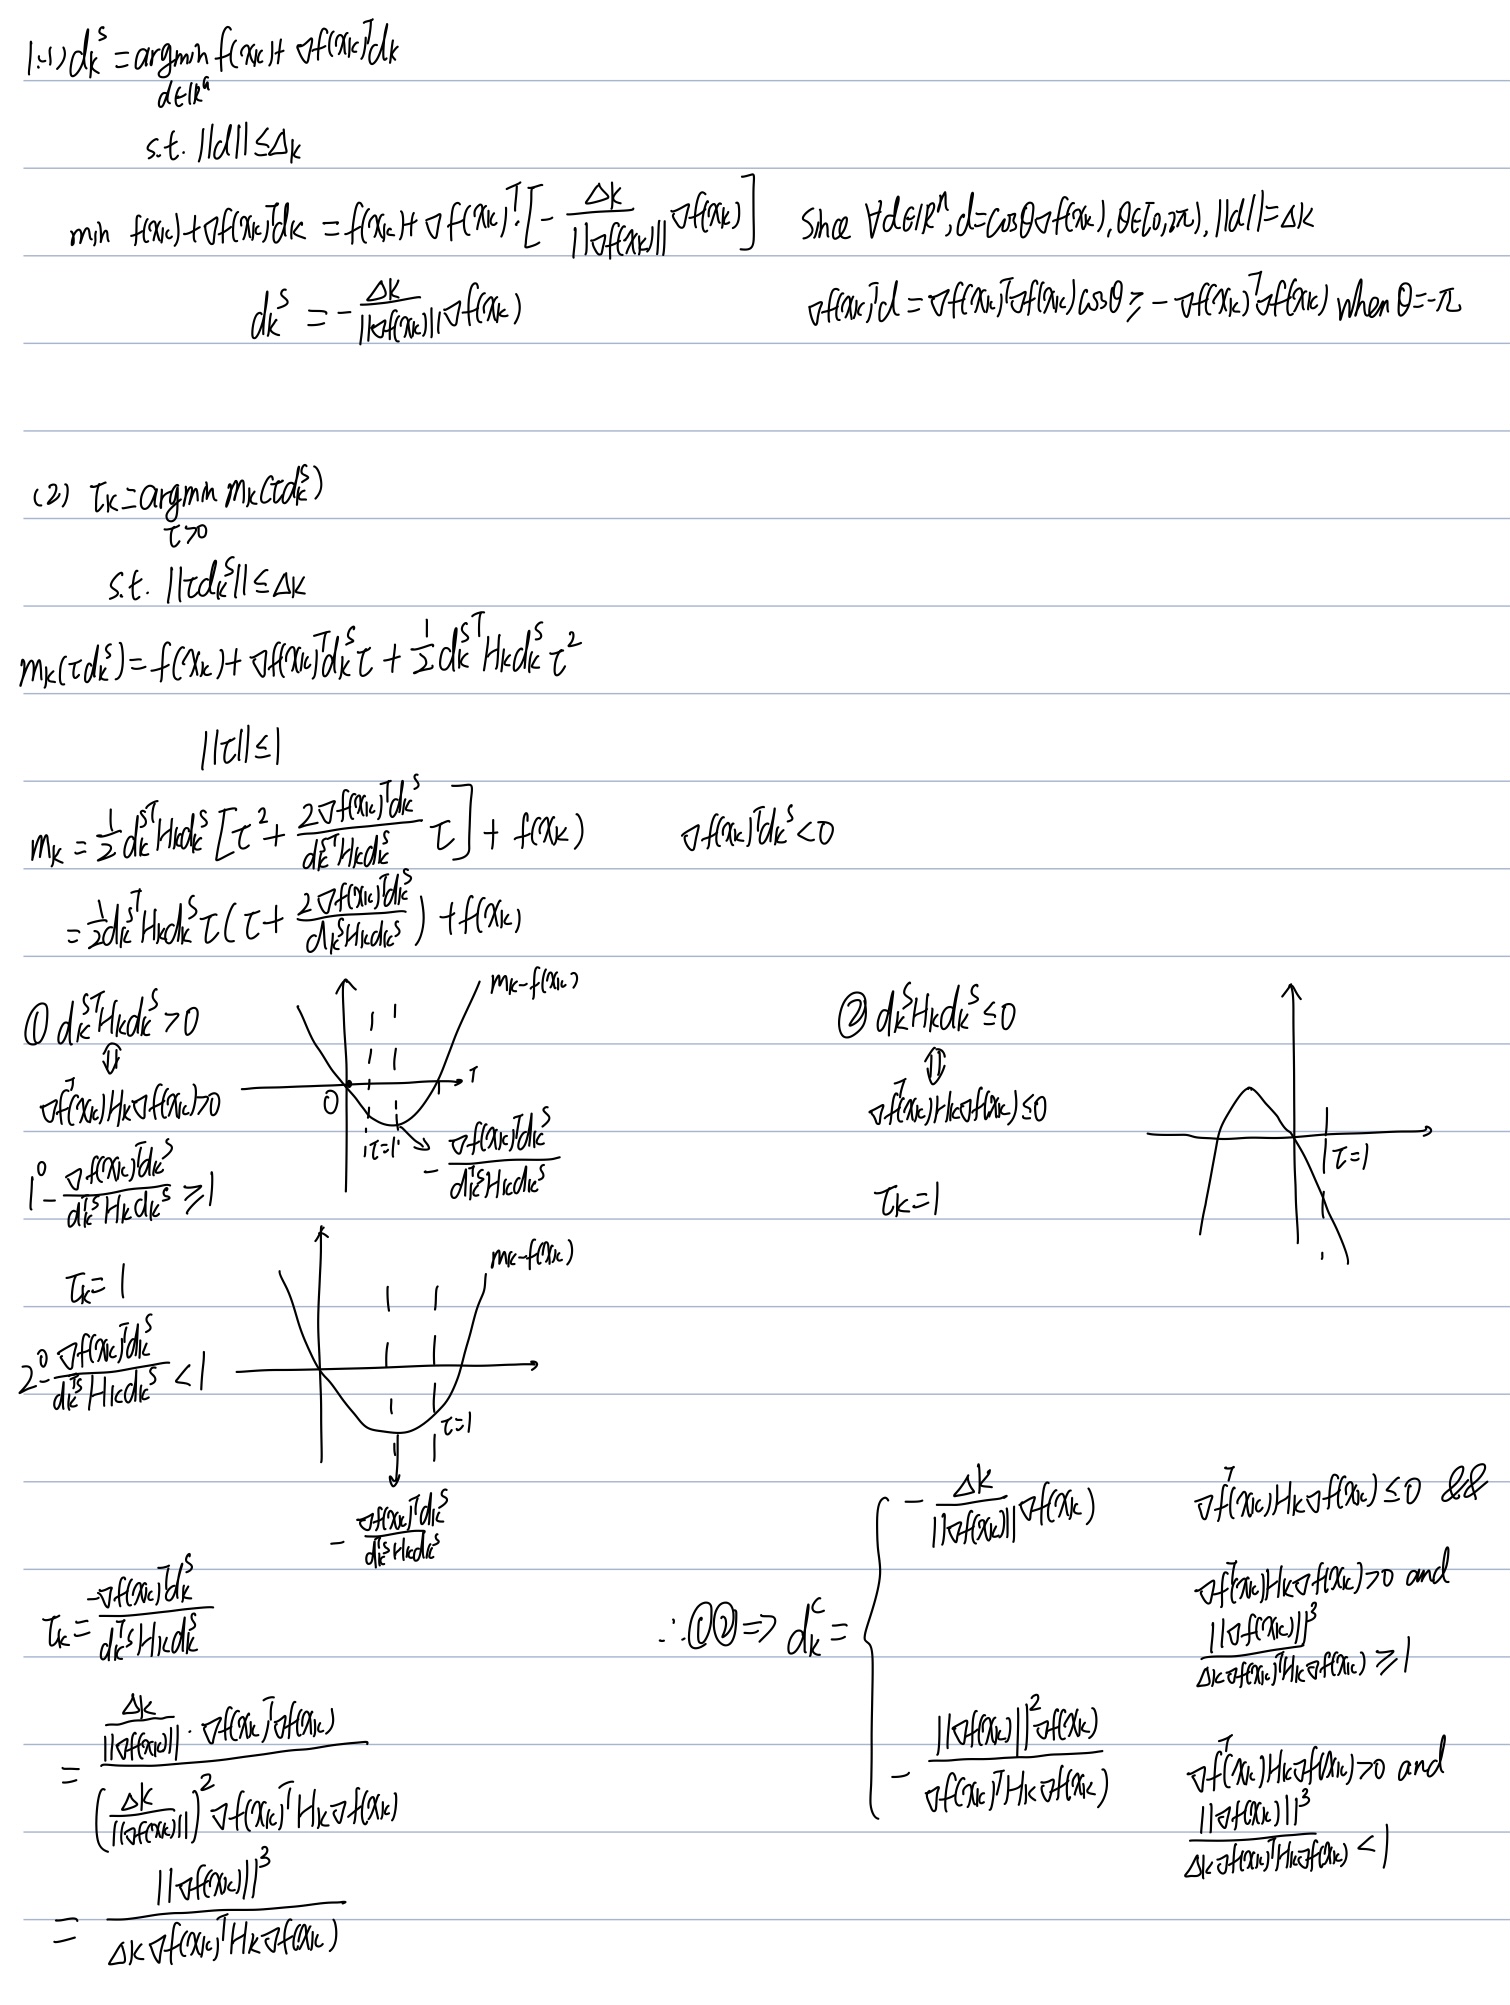 1.(1) dₖˢ = argmin f(xₖ) + ∇f(xₖ)ᵀdₖ
d∈ℝⁿ
s.t. ||d|| ≤ Δₖ
min f(xₖ) + ∇f(xₖ)ᵀdₖ = f(xₖ) + ∇f(xₖ)ᵀ·[-Δₖ/||∇f(xₖ)|| ∇f(xₖ)] Since ∀d∈ℝⁿ, d=cosθ∇f(xₖ), θ∈[0,2π), ||d||=Δₖ
dₖˢ = -Δₖ/||∇f(xₖ)|| ∇f(xₖ) ∇f(xₖ)ᵀd = ∇f(xₖ)ᵀ∇f(xₖ)cosθ ≥ -∇f(xₖ)ᵀ∇f(xₖ) when θ=-π
(2) τₖ = argmin mₖ(τdₖˢ)
τ>0
s.t. ||τdₖˢ|| ≤ Δₖ
mₖ(τdₖˢ) = f(xₖ) + ∇f(xₖ)ᵀdₖˢτ + 1/2 dₖˢᵀHₖdₖˢτ²
||τ|| ≤ 1
mₖ = 1/2 dₖˢᵀHₖdₖˢ[τ² + 2∇f(xₖ)ᵀdₖˢ/dₖˢᵀHₖdₖˢ τ] + f(xₖ) ∇f(xₖ)ᵀdₖˢ < 0
= 1/2 dₖˢᵀHₖdₖˢτ(τ + 2∇f(xₖ)ᵀdₖˢ/dₖˢHₖdₖˢ) + f(xₖ)
① dₖˢᵀHₖdₖˢ > 0
⇕
∇fᵀ(xₖ)Hₖ∇f(xₖ)>0
mₖ-f(xₖ)
τ
0
τ=1
-∇f(xₖ)ᵀdₖˢ/dₖᵀˢHₖdₖˢ
② dₖˢHₖdₖˢ ≤ 0
⇕
∇fᵀ(xₖ)Hₖ∇f(xₖ)≤0
τₖ=1
τ=1
1⁰ -∇f(xₖ)ᵀdₖˢ/dₖᵀˢHₖdₖˢ ≥ 1
τₖ = 1
mₖ-f(xₖ)
2⁰ -∇f(xₖ)ᵀdₖˢ/dₖᵀˢHₖdₖˢ < 1
τ=1
-∇f(xₖ)ᵀdₖˢ/dₖᵀˢHₖdₖˢ
τₖ = -∇f(xₖ)ᵀdₖˢ/dₖᵀˢHₖdₖˢ
= Δₖ/||∇f(xₖ)|| · ∇f(xₖ)ᵀ∇f(xₖ) / (Δₖ/||∇f(xₖ)||)² ∇f(xₖ)ᵀHₖ∇f(xₖ)
= ||∇f(xₖ)||³/Δₖ∇f(xₖ)ᵀHₖ∇f(xₖ)
∴①②⇒ dₖᶜ = {
-Δₖ/||∇f(xₖ)|| ∇f(xₖ) ∇fᵀ(xₖ)Hₖ∇f(xₖ)≤0 &&
∇fᵀ(xₖ)Hₖ∇f(xₖ)>0 and
||∇f(xₖ)||³/Δₖ∇f(xₖ)ᵀHₖ∇f(xₖ) ≥ 1
-||∇f(xₖ)||²∇f(xₖ)/∇f(xₖ)ᵀHₖ∇f(xₖ) ∇fᵀ(xₖ)Hₖ∇f(xₖ)>0 and
||∇f(xₖ)||³/Δₖ∇f(xₖ)ᵀHₖ∇f(xₖ) < 1